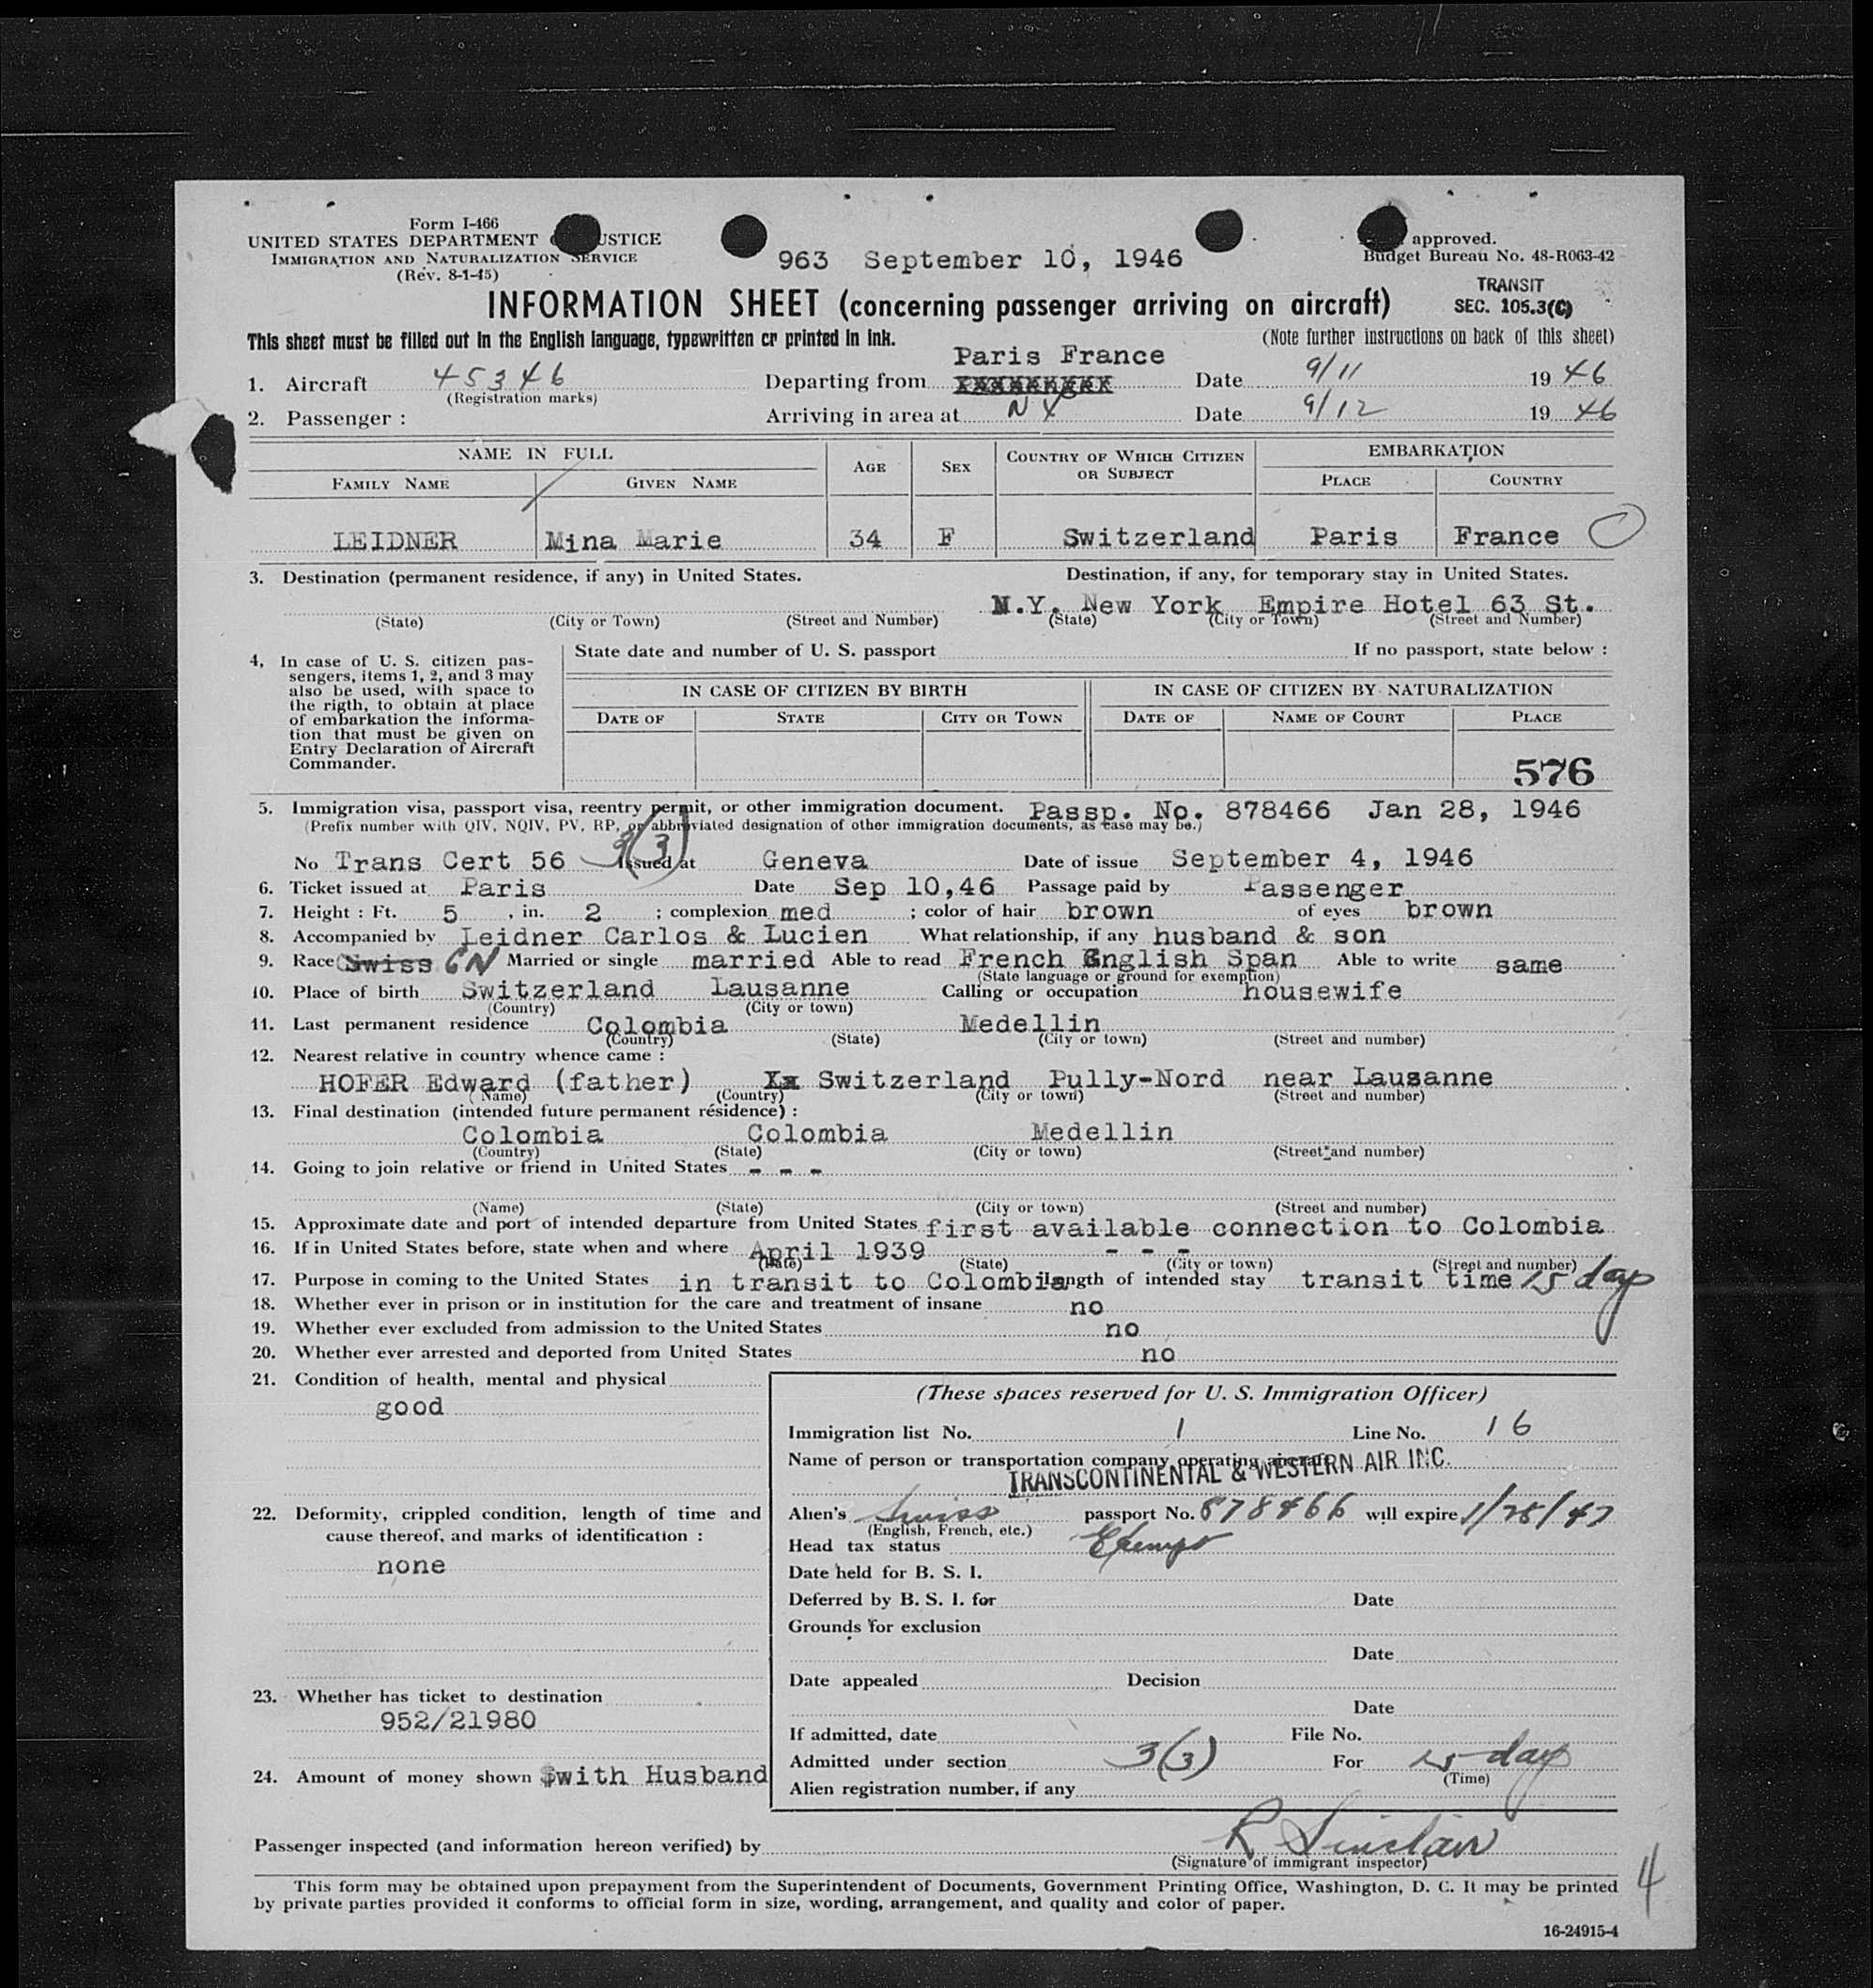 Form I-466
UNITED STATES DEPARTMENT USTICE
IMMIGRATION AND NATURALIZATION SERVICE
(Rev. 8-1-45)
963 September 10, 1946
approved.
Budget Bureau No. 48-R063-42
TRANSIT
SEC. 105.3(C)
INFORMATION SHEET (concerning passenger arriving on aircraft)
This sheet must be filled out in the English language, typewritten or printed in ink.
(Note further instructions on back of this sheet)
Paris France
1. Aircraft 45346 Departing from Date 9/11 1946
(Registration marks)
2. Passenger : Arriving in area at NY Date 9/12 1946
NAME IN FULL AGE SEX COUNTRY OF WHICH CITIZEN OR SUBJECT EMBARKATION
FAMILY NAME GIVEN NAME PLACE COUNTRY
LEIDNER Mina Marie 34 F Switzerland Paris France
3. Destination (permanent residence, if any) in United States. Destination, if any, for temporary stay in United States.
N.Y. New York Empire Hotel 63 St.
(State) (City or Town) (Street and Number) (State) (City or Town) (Street and Number)
4, In case of U. S. citizen pas-
sengers, items 1, 2, and 3 may
also be used, with space to
the rigth, to obtain at place
of embarkation the informa-
tion that must be given on
Entry Declaration of Aircraft
Commander.
State date and number of U. S. passport If no passport, state below :
IN CASE OF CITIZEN BY BIRTH IN CASE OF CITIZEN BY NATURALIZATION
DATE OF STATE CITY OR TOWN DATE OF NAME OF COURT PLACE
576
5. Immigration visa, passport visa, reentry permit, or other immigration document. Passp. No. 878466 Jan 28, 1946
(Prefix number with QIV, NQIV, PV, RP, or abbreviated designation of other immigration documents, as case may be.)
3(3)
No Trans Cert 56 Issued at Geneva Date of issue September 4, 1946
6. Ticket issued at Paris Date Sep 10,46 Passage paid by Passenger
7. Height : Ft. 5 , in. 2 ; complexion med ; color of hair brown of eyes brown
8. Accompanied by Leidner Carlos & Lucien What relationship, if any husband & son
9. Race Swiss Married or single married Able to read French English Span Able to write same
(State language or ground for exemption)
10. Place of birth Switzerland Lausanne Calling or occupation housewife
(Country) (City or town)
11. Last permanent residence Colombia Medellin
(Country) (State) (City or town) (Street and number)
12. Nearest relative in country whence came :
HOFER Edward (father) Xx Switzerland Pully-Nord near Lausanne
(Name) (Country) (City or town) (Street and number)
13. Final destination (intended future permanent résidence) :
Colombia Colombia Medellin
(Country) (State) (City or town) (Street and number)
14. Going to join relative or friend in United States - - -
(Name) (State) (City or town) (Street and number)
15. Approximate date and port of intended departure from United States first available connection to Colombia
16. If in United States before, state when and where April 1939 - - -
(Date) (State) (City or town) (Street and number)
17. Purpose in coming to the United States in transit to Colombia Length of intended stay transit time 15 day
18. Whether ever in prison or in institution for the care and treatment of insane no
19. Whether ever excluded from admission to the United States no
20. Whether ever arrested and deported from United States no
21. Condition of health, mental and physical
good
22. Deformity, crippled condition, length of time and
cause thereof, and marks of identification :
none
23. Whether has ticket to destination
952/21980
24. Amount of money shown $with Husband
(These spaces reserved for U. S. Immigration Officer)
Immigration list No. 1 Line No. 16
Name of person or transportation company operating aircraft
TRANSCONTINENTAL & WESTERN AIR INC.
Alien's Swiss passport No. 878466 will expire 1/28/47
(English, French, etc.)
Head tax status Exempt
Date held for B. S. I.
Deferred by B. S. I. for Date
Grounds for exclusion
Date
Date appealed Decision
Date
If admitted, date File No.
Admitted under section 3(3) For 15 day
(Time)
Alien registration number, if any
Passenger inspected (and information hereon verified) by R Sinclair
(Signature of immigrant inspector)
4
This form may be obtained upon prepayment from the Superintendent of Documents, Government Printing Office, Washington, D. C. It may be printed
by private parties provided it conforms to official form in size, wording, arrangement, and quality and color of paper.
16-24915-4